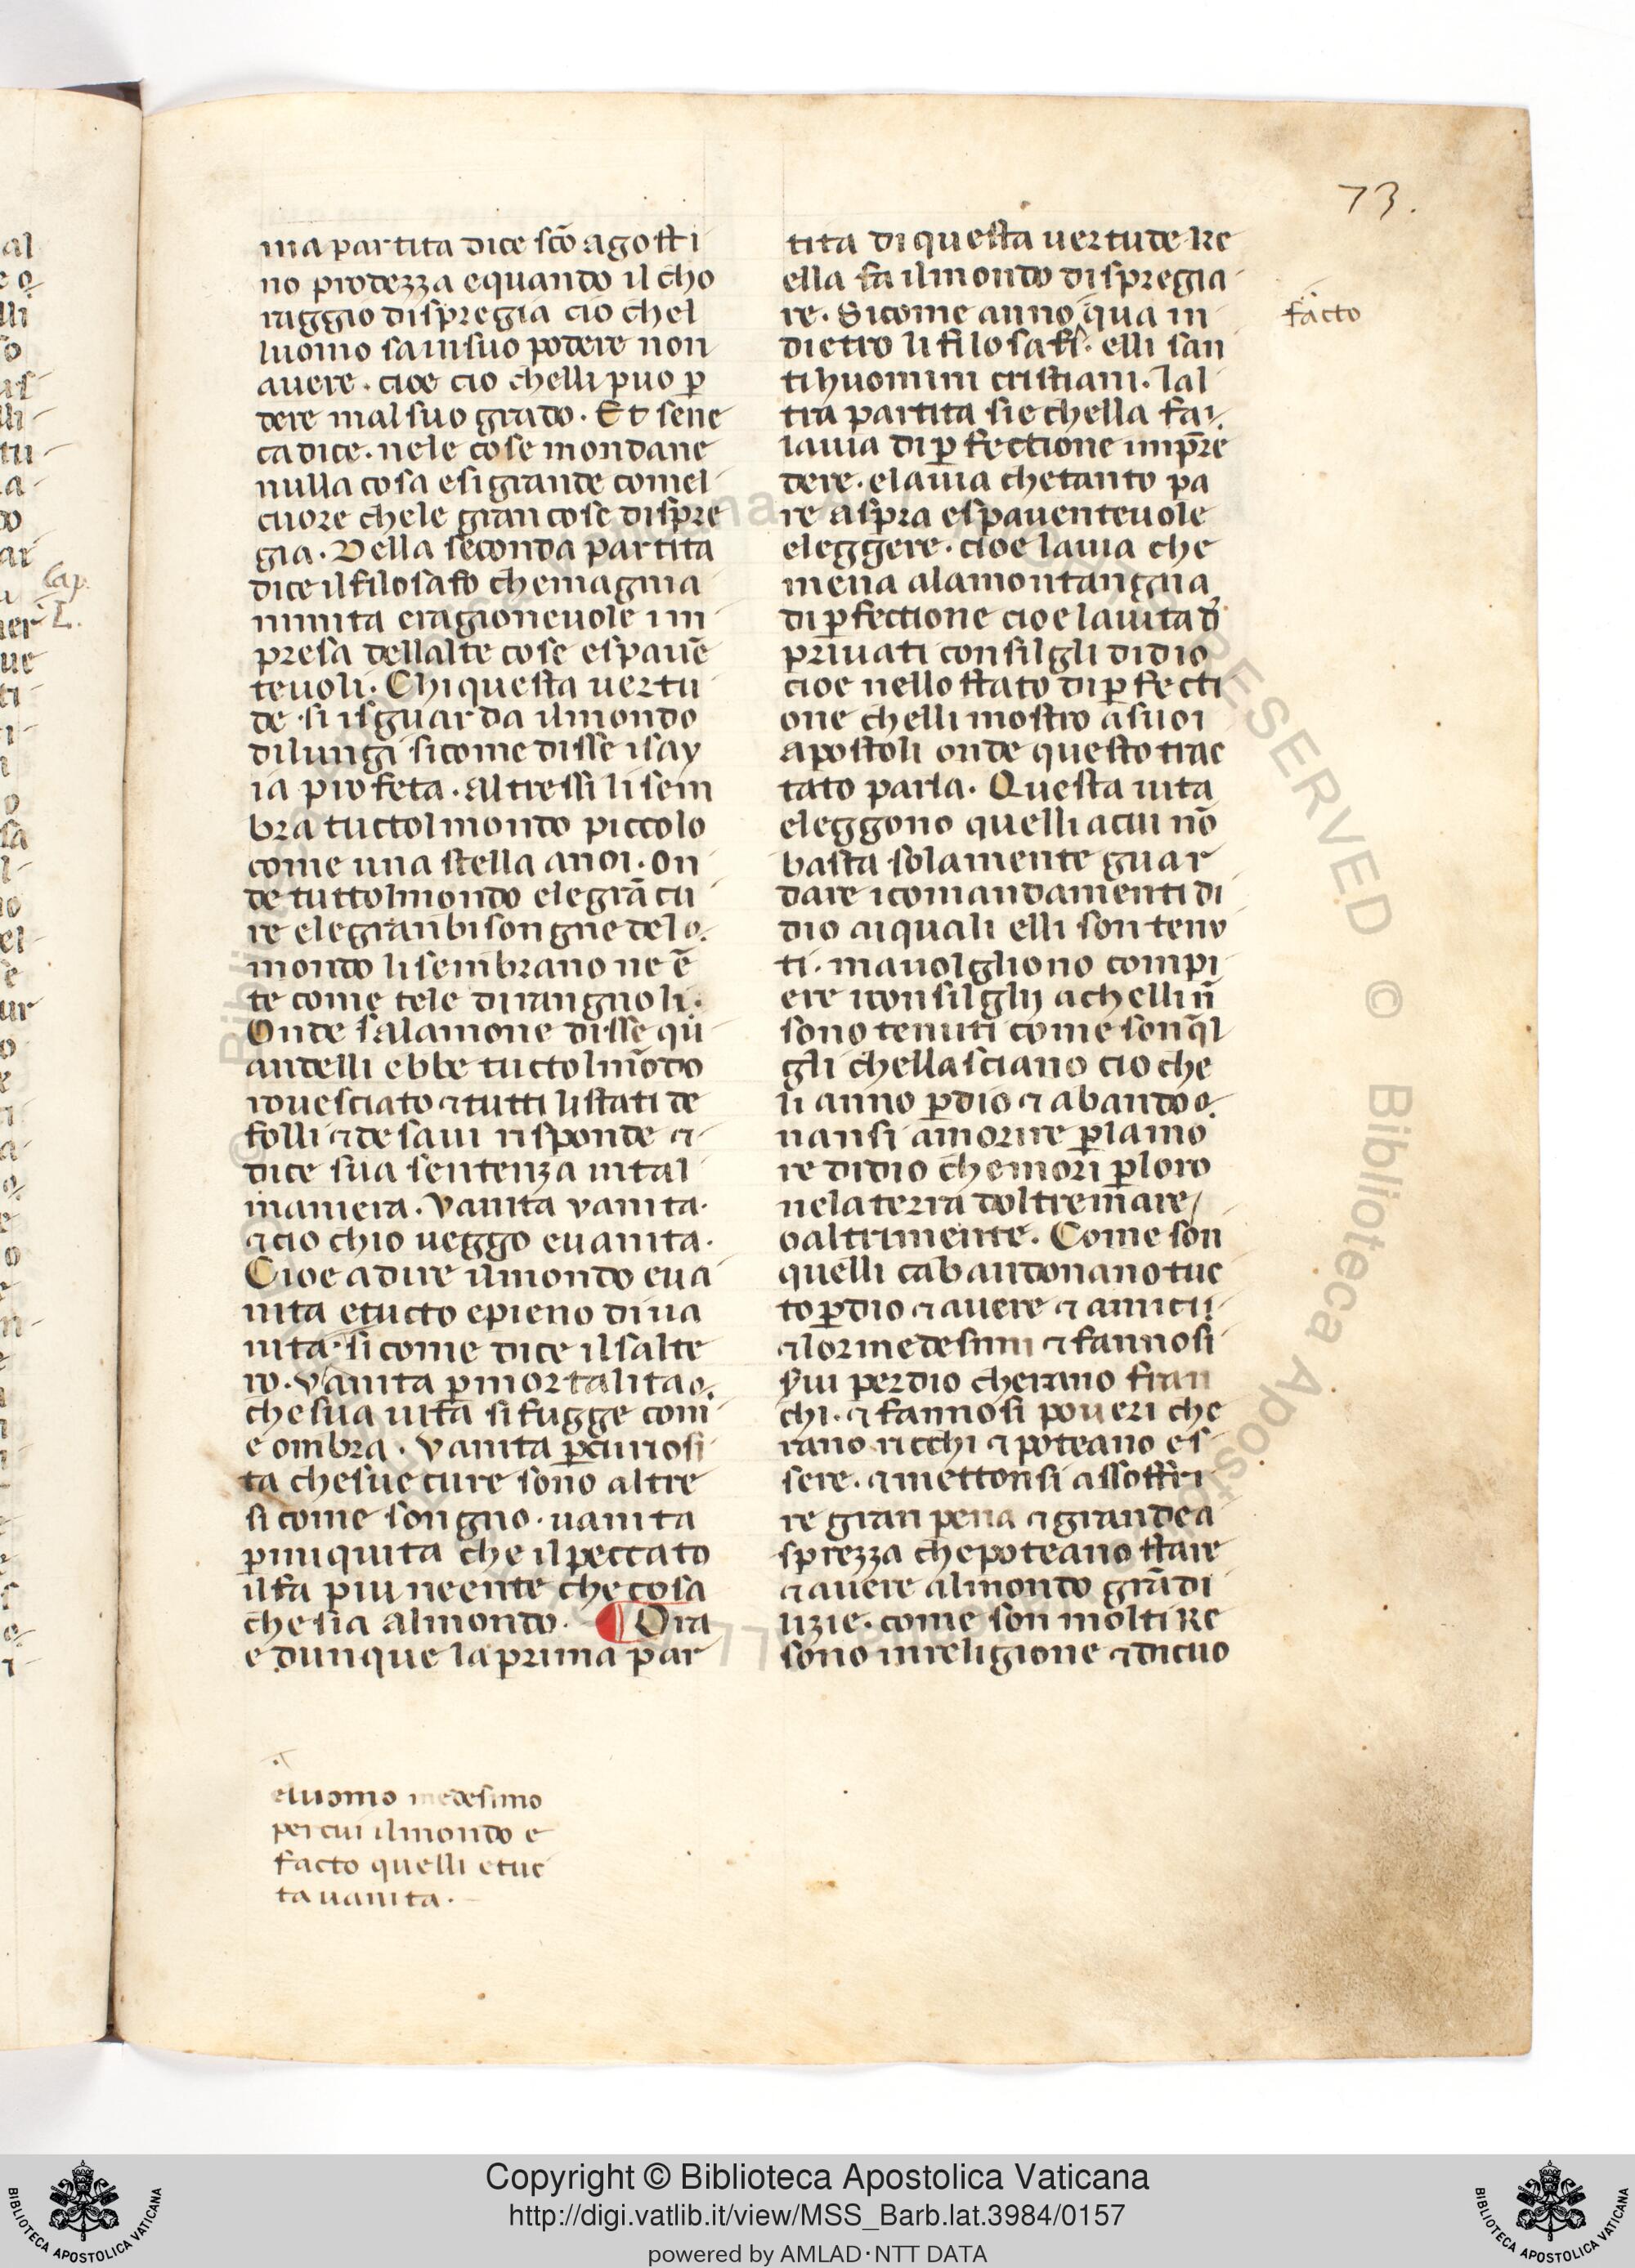 73.
ma partita dice sc̄o agosti
no prodezza equando il cho
raggio dispregia cio chel
luomo sa insuo podere non
auere . cioe cio chelli puo ꝑ
dere mal suo grado . Et sene
ca dice . nele cose mondane
nulla cosa esi grande comel
cuore chele gran cose dispre
gia . Della seconda partita
dice il filosafo che magna
nimita eragioneuole im
presa dellalte cose espauē
teuoli . Chi questa uertu
de si isguarda ilmondo
dilungi sicome disse isay
ia profeta . altressi li sem
bra tuctol mondo piccolo
come una stella anoi . on
de tuttolmondo elegrā cu
re elegran bisongne delo
mondo li sembrano ne ē
te come tele dirangnoli .
Onde salamone disse qū
andelli ebbe tuctolmōdo
rouesciato ⁊ tutti listati de
folli ⁊ de saui risponde ⁊
dice sua sentenza intal
maniera . Vanita vanita .
⁊ cio chio ueggo euanita .
Cioe adire ilmondo eua
nita etucto epieno diua
nita sicome dice ilsalte
ro . Vanita ꝑ mortalita
che sua uita si fugge com
e ombra . Vanita ꝑ curiosi
ta che sue cure sono altre
si come songno . uanita
ꝑ iniquita che il peccato
ilfa piu neente che cosa
che sia almondo . ¶ Ora
e dunque la prima par
tita di questa uertude ke
ella fa ilmondo dispregia
re . Sicome anno qua in
dietro li filosafi . elli san
ti huomini cristiani . lal
tra partita sie chella fa
lauia di ꝑfectione impr̄e
dere . elauia chetanto pa
re aspra espauenteuole
eleggere . cioe lauia che
mena alamontangna
di ꝑfectione cioe lauita di
priuati consilgli didio
cioe nello stato di ꝑfecti
one chelli mostro asuoi
apostoli onde questo trac
tato parla . Questa uita
eleggono quelli acui nō
basta solamente guar
dare icomandamenti di
dio aiquali elli son tenu
ti . ma uolgliono compi
ere iconsilglij achelli n̄
sono tenuti come son q̄l
gli chellasciano cio che
li anno ꝑ dio ⁊ abando
nansi amorire ꝑ lamo
re didio che mori ꝑ loro
nela terra doltremare
oaltrimente . Come son
quelli cabandonano tuc
to ꝑ dio ⁊ auere ⁊ amici
⁊ lor medesimi ⁊ fannosi
per dio cherano fran
chi . ⁊ fannosi poueri che
rano ricchi ⁊ poteano es
sere . ⁊ mettonsi assoffri
re gran pena ⁊ grande a
sprezza che poteano stare
⁊ auere almondo grādi
lizie . come son molti ke
sono in religione ⁊ dicuo
facto
eluomo medesimo
per cui ilmondo e
facto quelli etuc
ta uanita .
Cap.
L.
Copyright © Biblioteca Apostolica Vaticana
http://digi.vatlib.it/view/MSS_Barb.lat.3984/0157
powered by AMLAD·NTT DATA
BIBLIOTECA APOSTOLICA VATICANA
BIBLIOTECA APOSTOLICA VATICANA